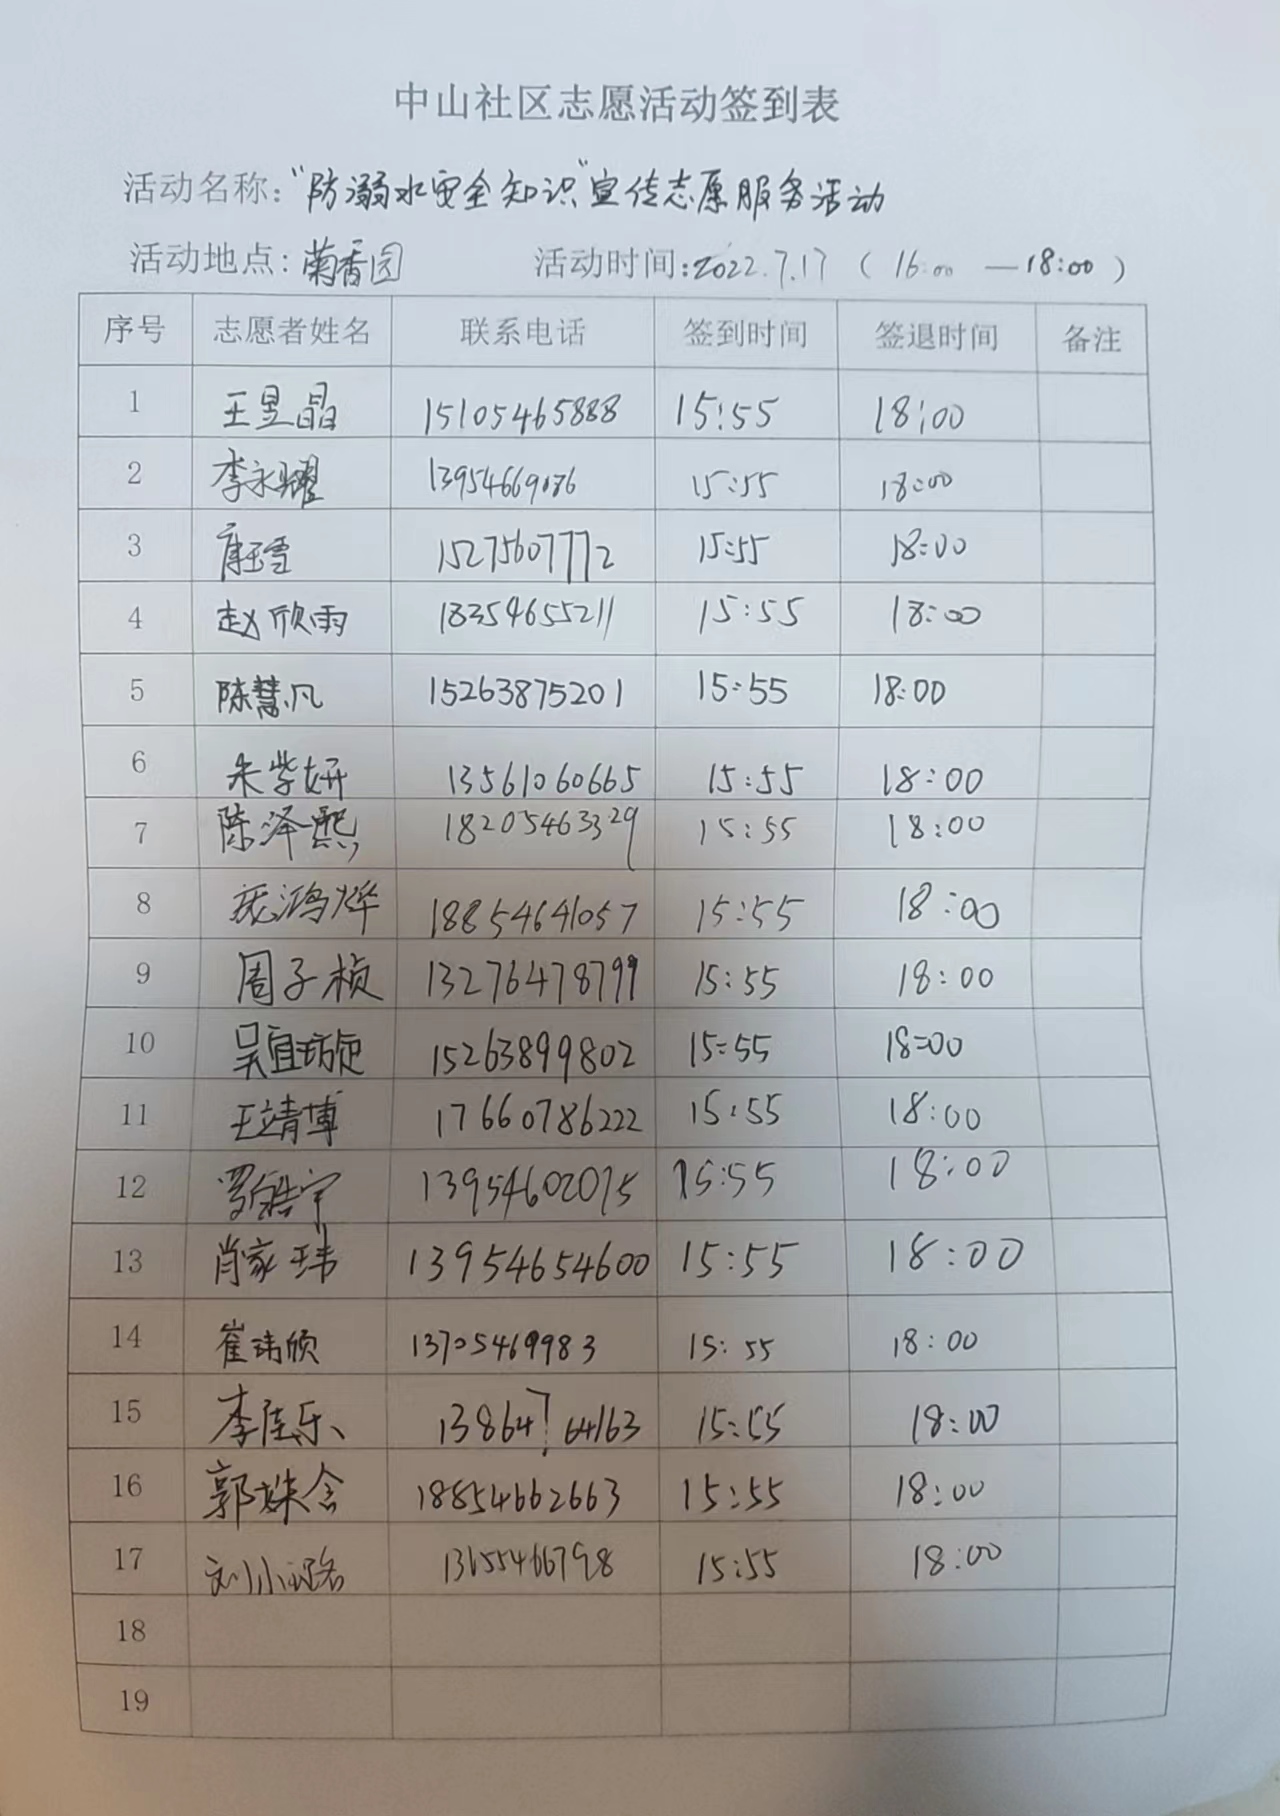 中山社区志愿活动签到表
活动名称:"防溺水安全知识"宣传志愿服务活动
活动地点:菊香园 活动时间:2022.7.17 (16:00 —18:00)
序号 志愿者姓名 联系电话 签到时间 签退时间 备注
1 王昱晶 15105465888 15:55 18:00
2 李永耀 13954669086 15:55 18:00
3 15275607772 15:55 18:00
4 赵欣雨 18354655211 15:55 18:00
5 陈慧凡 15263875201 15:55 18:00
6 朱紫妍 13561060665 15:55 18:00
7 陈泽熙 18205463329 15:55 18:00
8 18854641057 15:55 18:00
9 周子桢 13276478799 15:55 18:00
10 吴宜璇 15263899802 15:55 18:00
11 王靖博 17660786222 15:55 18:00
12 罗皓宁 13954602075 15:55 18:00
13 肖家玮 13954654600 15:55 18:00
14 崔玮颀 13705469983 15:55 18:00
15 李佳乐 13864764163 15:55 18:00
16 郭姝含 18854662663 15:55 18:00
17 13655466798 15:55 18:00
18
19